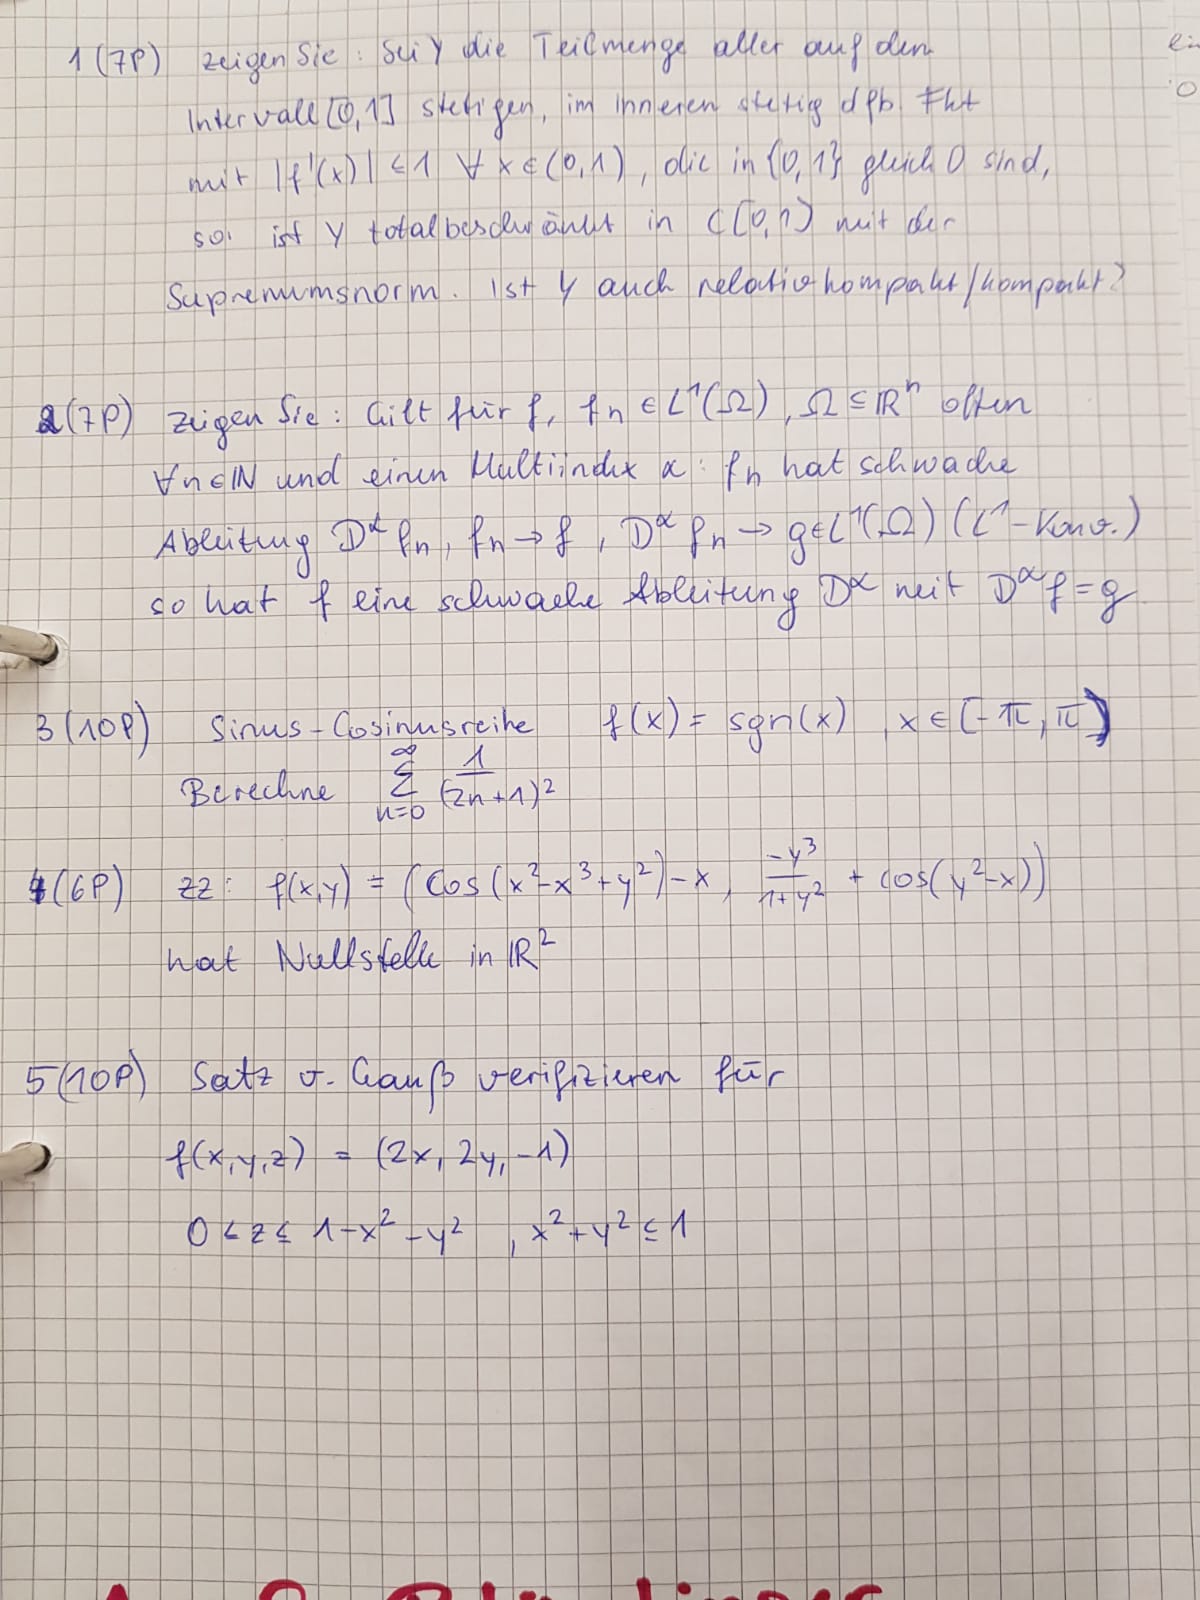 1 (7P) zeigen Sie: Sei Y die Teilmenge aller auf dem
Intervall [0,1] stetigen, im Inneren stetig dfb. Fkt
mit |f'(x)| < 1 ∀ x ∈ (0,1), die in {0,1} gleich 0 sind,
so ist Y totalbeschränkt in C[0,1] mit der
Supremumsnorm. Ist Y auch relativkompakt/kompakt?
2 (7P) zeigen Sie: Gilt für f, fn ∈ L¹(Ω), Ω ⊆ ℝⁿ offen
∀n∈ℕ und einen Multiindex α: fn hat schwache
Ableitung D^α fn, fn → f, D^α fn → g∈L¹(Ω) (L¹-Konv.)
so hat f eine schwache Ableitung D^α mit D^α f = g
3 (10P) Sinus-Cosinusreihe f(x) = sgn(x), x ∈ [-π, π)
Berechne ∑_{n=0}^{∞} 1/(2n+1)²
4 (6P) zz: f(x,y) = (cos(x²-x³+y²)-x, -y³/(1+y²) + cos(y²-x))
hat Nullstelle in ℝ²
5 (10P) Satz v. Gauß verifizieren für
f(x,y,z) = (2x, 2y, -1)
0 < z ≤ 1-x²-y², x²+y² ≤ 1